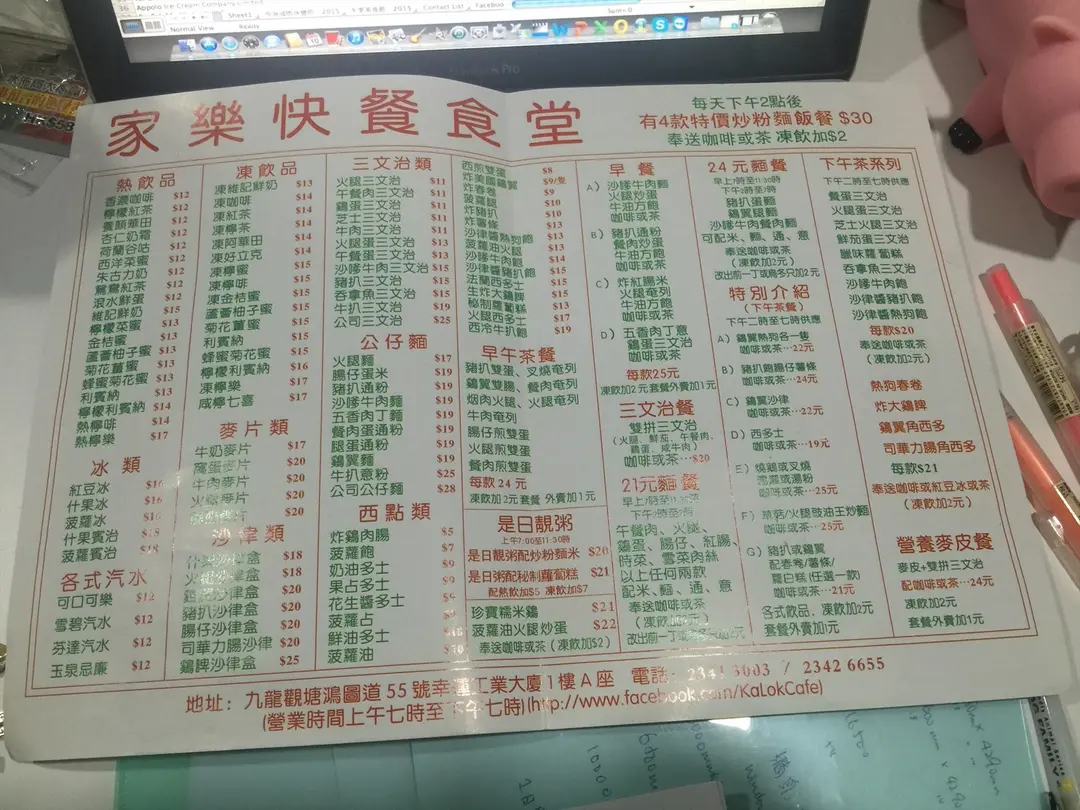 Appolo Ice Cream Company Limited
Sheet1
2015
2015
Contact List
Faceboo
Normal View
Ready
Sum=0
家樂快餐食堂
每天下午2點後
有4款特價炒粉麵飯餐 $30
奉送咖啡或茶 凍飲加$2
熱飲品
香濃咖啡 $12
檸檬紅茶 $12
養顏華田 $12
杏仁奶霜 $12
荷蘭谷咕 $12
西洋菜蜜 $12
朱古力奶 $12
鴛鴦紅茶 $12
滾水鮮蛋 $12
維記鮮奶 $12
檸檬菜蜜 $13
金桔蜜 $13
蘆薈柚子蜜 $13
菊花薑蜜 $13
蜂蜜菊花蜜 $13
利賓納 $13
檸檬利賓納 $14
熱檸啡 $14
熱檸樂 $17
冰類
紅豆冰 $16
什果冰 $16
菠蘿冰 $16
什果賓治 $18
菠蘿賓治 $18
各式汽水
可口可樂 $12
雪碧汽水 $12
芬達汽水 $12
玉泉忌廉 $12
凍飲品
凍維記鮮奶 $13
凍咖啡 $14
凍紅茶 $14
凍檸茶 $14
凍阿華田 $14
凍好立克 $14
凍檸蜜 $15
凍檸啡 $15
凍金桔蜜 $15
蘆薈柚子蜜 $15
菊花薑蜜 $15
利賓納 $15
蜂蜜菊花蜜 $15
檸檬利賓納 $16
凍檸樂 $17
咸檸七喜 $17
麥片類
牛奶麥片 $17
窩蛋麥片 $20
牛肉麥片 $20
火腿麥片 $20
麥片 $20
沙律類
什果沙律盒 $18
火腿沙律盒 $18
沙律盒 $20
豬扒沙律盒 $20
腸仔沙律盒 $20
司華力腸沙律 $20
鷄髀沙律盒 $25
三文治類
火腿三文治 $11
午餐肉三文治 $11
鷄蛋三文治 $11
芝士三文治 $11
牛肉三文治 $11
火腿蛋三文治 $13
午餐蛋三文治 $13
沙嗲牛肉三文治 $15
豬扒三文治 $15
吞拿魚三文治 $15
牛扒三文治 $19
公司三文治 $25
公仔麵
火腿麵 $17
腸仔蛋米 $19
豬扒通粉 $19
沙嗲牛肉麵 $19
五香肉丁麵 $19
餐肉蛋通粉 $19
腿蛋通粉 $19
鷄翼麵 $19
牛扒意粉 $25
公司公仔麵 $28
西點類
炸鷄肉腸 $5
菠蘿飽 $7
奶油多士 $9
果占多士 $9
花生醬多士 $9
菠蘿占 $9
鮮油多士 $10
菠蘿油 $10
西煎雙蛋 $8
炸美國鷄翼 $9/隻
炸春卷 $9
菠蘿腿 $10
炸豬扒 $10
炸薯條 $13
沙律醬熱狗飽 $13
菠蘿油火腿 $13
牛油豬扒飽 $14
沙律醬豬扒飽 $15
法蘭西多士 $15
生炸大鷄髀 $15
秘制蘿蔔糕 $13
火腿西多士 $17
西冷牛扒飽 $19
早午茶餐
豬扒雙蛋、叉燒奄列
鷄翼雙腸、餐肉奄列
烟肉火腿、火腿奄列
牛肉奄列
腸仔煎雙蛋
火腿煎雙蛋
餐肉煎雙蛋
每款 24 元
凍飲加2元 套餐 外賣加1元
是日靚粥
上午7:00至11:30時
是日靚粥配炒粉麵米 $20
是日靚粥配秘制蘿蔔糕 $21
配熱飲加$5 凍飲加$7
珍寶糯米鷄 $21
菠蘿油火腿炒蛋 $22
奉送咖啡或茶 (凍飲加$2)
早餐
A) 沙嗲牛肉麵
火腿炒蛋
牛油方飽
咖啡或茶
B) 豬扒通粉
餐肉炒蛋
牛油方飽
咖啡或茶
C) 炸紅腸米
火腿奄列
牛油方飽
咖啡或茶
D) 五香肉丁意
鷄蛋三文治
咖啡或茶
每款25元
凍飲加2元 套餐外賣加1元
三文治餐
雙拼三文治
(火腿、鮮茄、午餐肉、
鷄蛋、咸牛肉)
咖啡或茶…$20
21元麵餐
早上7時至11:30時
下午2時至7時
午餐肉、火腿、
鷄蛋、腸仔、紅腸、
時菜、雪菜肉絲
以上任何兩款
配米、麵、通、意
奉送咖啡或茶
(凍飲加2元)
改出前一丁或烏冬只加2元
24元麵餐
早上7時至11:30時
下午2時至7時
豬扒蛋麵
鷄翼腿麵
沙嗲牛肉餐肉麵
可配米、麵、通、意
奉送咖啡或茶
(凍飲加2元)
改出前一丁或烏冬只加2元
特別介紹
(下午茶餐)
下午二時至七時供應
A) 鷄翼熱狗各一隻
咖啡或茶…22元
B) 豬扒飽腸仔薯條
咖啡或茶…24元
C) 鷄翼沙律
咖啡或茶…22元
D) 西多士
咖啡或茶…19元
E) 燒鵝或叉燒
瀨或湯粉
咖啡或茶…25元
F) 草菇/火腿豉油王炒麵
咖啡或茶…25元
G) 豬扒或鷄翼
配春卷/薯條/
蘿白糕(任選一款)
咖啡或茶…21元
各式飲品,凍飲加2元
套餐外賣加1元
下午茶系列
下午二時至七時供應
餐蛋三文治
火腿蛋三文治
芝士火腿三文治
鮮茄蛋三文治
臘味蘿蔔糕
吞拿魚三文治
沙嗲牛肉飽
沙律醬豬扒飽
沙律醬熱狗飽
每款$20
奉送咖啡或茶
(凍飲加2元)
熱狗春卷
炸大鷄髀
鷄翼角西多
司華力腸角西多
每款$21
奉送咖啡或紅豆冰或茶
(凍飲加2元)
營養麥皮餐
麥皮+雙拼三文治
配咖啡或茶…24元
凍飲加2元
套餐外賣加1元
地址: 九龍觀塘鴻圖道 55 號幸運工業大廈1樓A座 電話: 2341 3003 / 2342 6655
(營業時間上午七時至下午七時)(http://www.facebook.com/KaLokCafe)